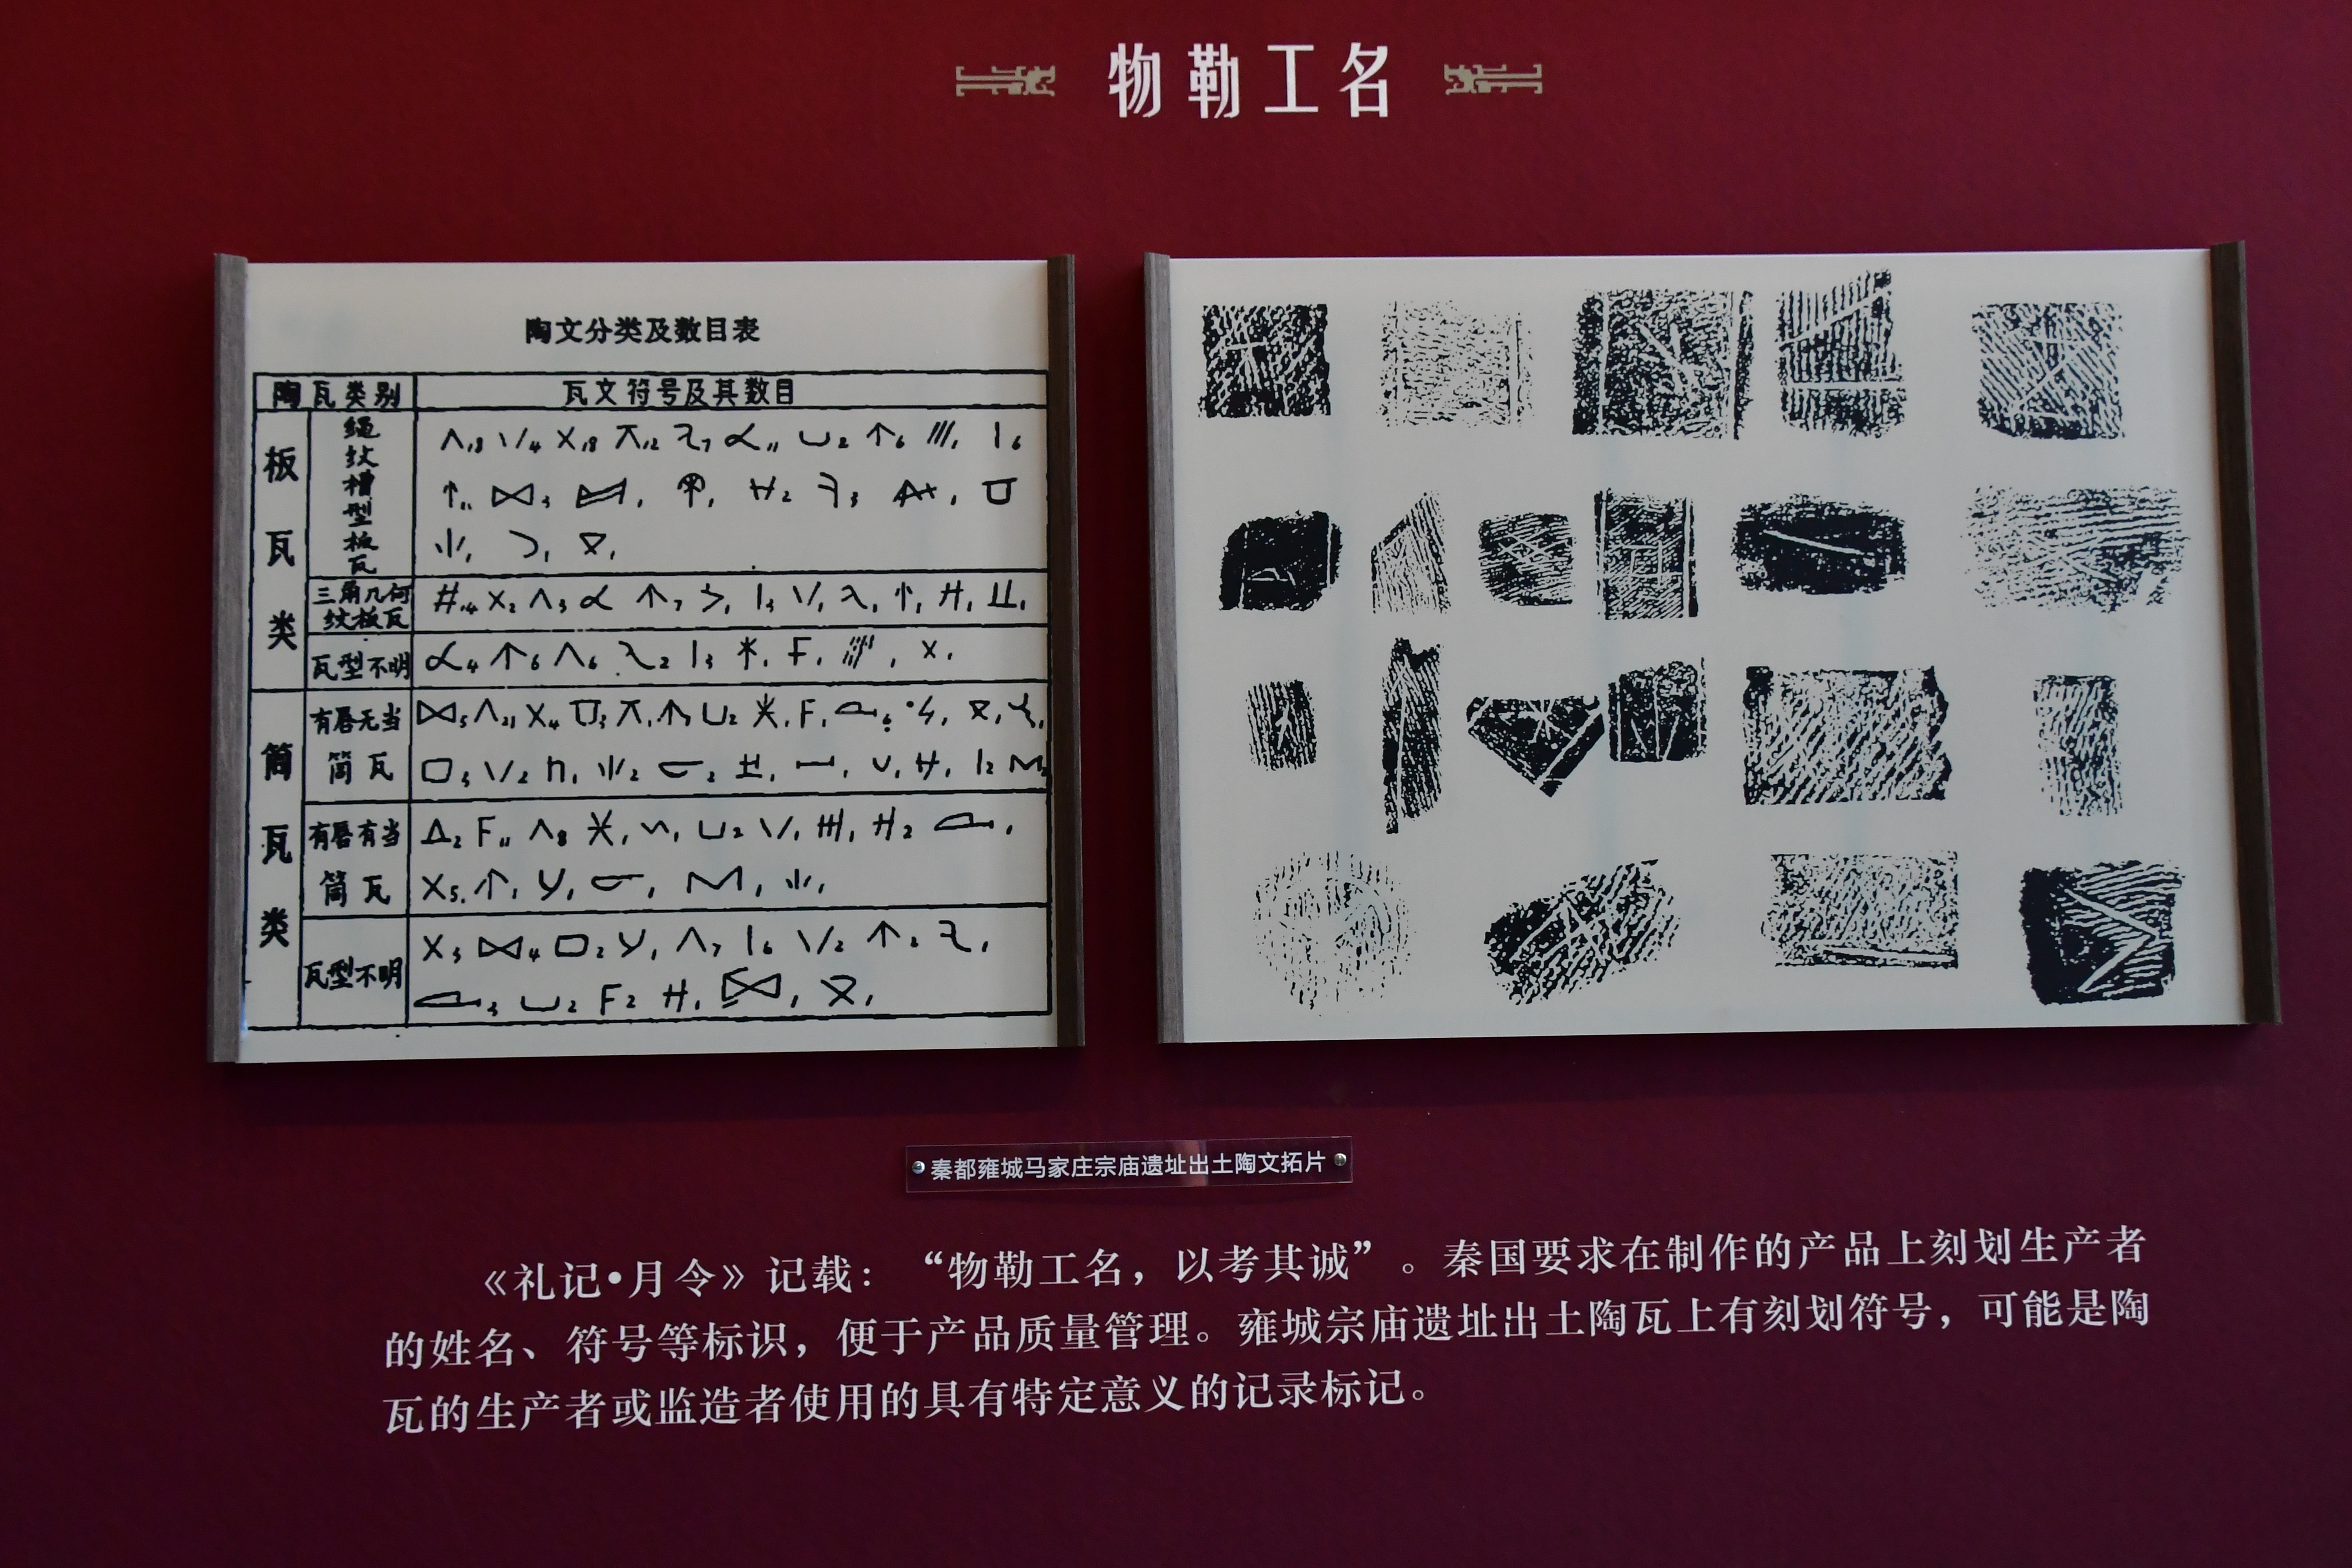 物勒工名
陶文分类及数目表
陶瓦类别
瓦文符号及其数目
板瓦类
绳纹槽型板瓦
三角几何
纹板瓦
瓦型不明
筒瓦类
有唇无当
筒瓦
有唇有当
筒瓦
瓦型不明
秦都雍城马家庄宗庙遗址出土陶文拓片
《礼记•月令》记载：“物勒工名，以考其诚”。秦国要求在制作的产品上刻划生产者
的姓名、符号等标识，便于产品质量管理。雍城宗庙遗址出土陶瓦上有刻划符号，可能是陶
瓦的生产者或监造者使用的具有特定意义的记录标记。